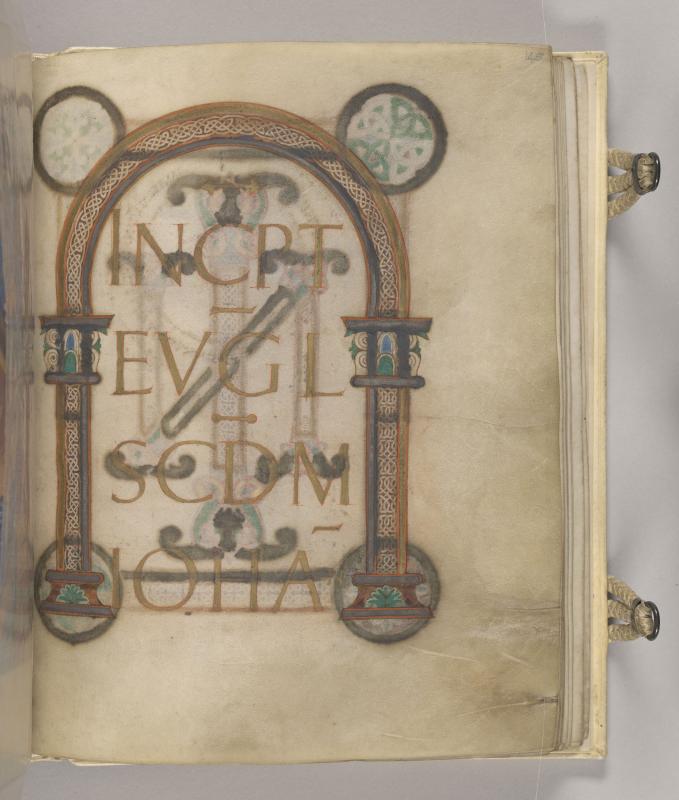 INCPT
EVGL
SCDM
IOHA